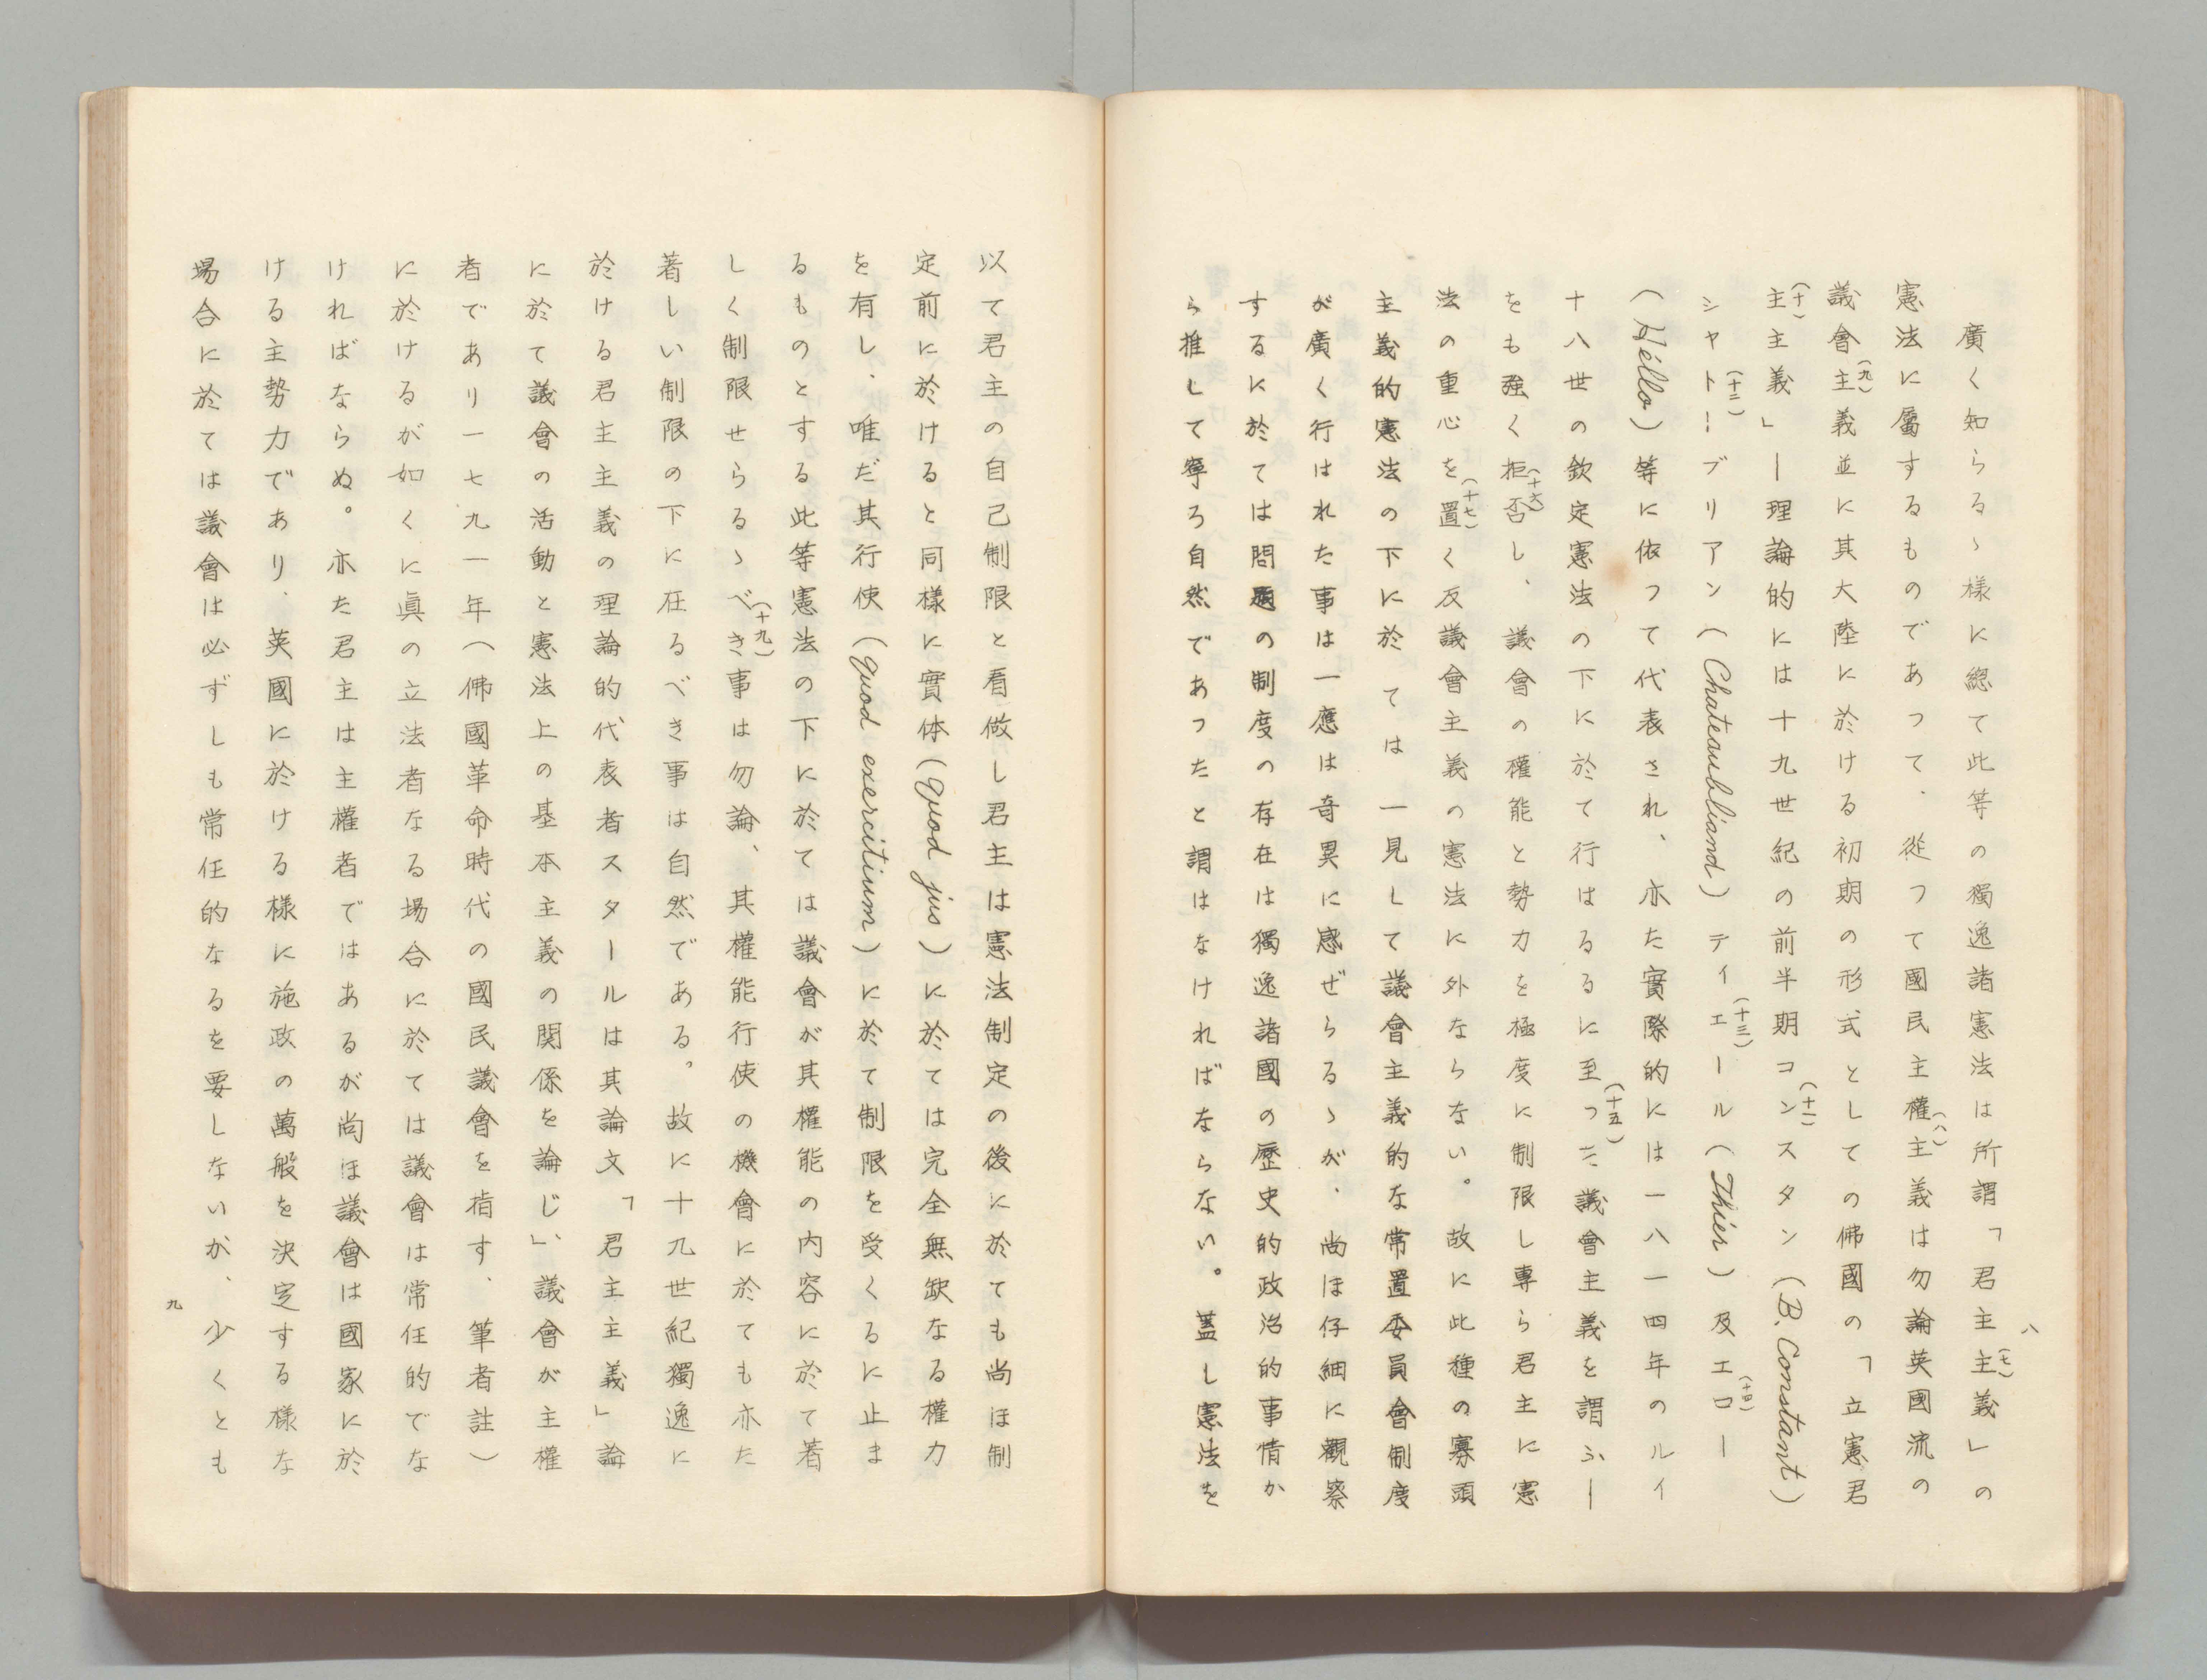 八
廣く知らるゝ様に總て此等の獨逸諸憲法は所謂「君主主義(七)」の
憲法に屬するものであつて、從つて國民主權主義(八)は勿論英國流の
議會主義(九)並に其大陸に於ける初期の形式としての佛國の「立憲君
主主義(十)」—理論的には十九世紀の前半期コンスタン(十一)(B. Constant)
シャトー(十二)ブリアン(Chateaubliand)ティエール(十三)(Thier)及エロー(十四)
(Héllo)等に依つて代表され、亦た實際的には一八一四年のルイ
十八世の欽定憲法の下に於て行はるるに至つた(十五)議會主義を謂ふ—
をも強く拒否(十六)し、議會の權能と勢力を極度に制限し專ら君主に憲
法の重心を置(十七)く反議會主義の憲法に外ならない。故に此種の寡頭
主義的憲法の下に於ては一見して議會主義的な常置委員會制度
が廣く行はれた事は一應は奇異に感ぜらるゝが、尚ほ仔細に觀察
するに於ては問題の制度の存在は獨逸諸國の歷史的政治的事情か
ら推して寧ろ自然であつたと謂はなければならない。蓋し憲法を
以て君主の自己制限と看做し君主は憲法制定の後に於ても尚ほ制
定前に於けると同樣に實体(quod jus)に於ては完全無缺なる權力
を有し、唯だ其行使(quod exercitium)に於て制限を受くるに止ま
るものとする此等憲法の下に於ては議會が其權能の内容に於て著
しく制限せらるゝべき(十九)事は勿論、其權能行使の機會に於ても亦た
著しい制限の下に在るべき事は自然である。故に十九世紀獨逸に
於ける君主主義の理論的代表者スタールは其論文「君主主義」論
に於て議會の活動と憲法上の基本主義の関係を論じ」、議會が主權
者であり一七九一年(佛國革命時代の國民議會を指す、筆者註)
に於けるが如くに眞の立法者なる場合に於ては議會は常任的でな
ければならぬ。亦た君主は主權者ではあるが尚ほ議會は國家に於
ける主勢力であり、英國に於ける樣に施政の萬般を決定する樣な
場合に於ては議會は必ずしも常任的なるを要しないが、少くとも
九